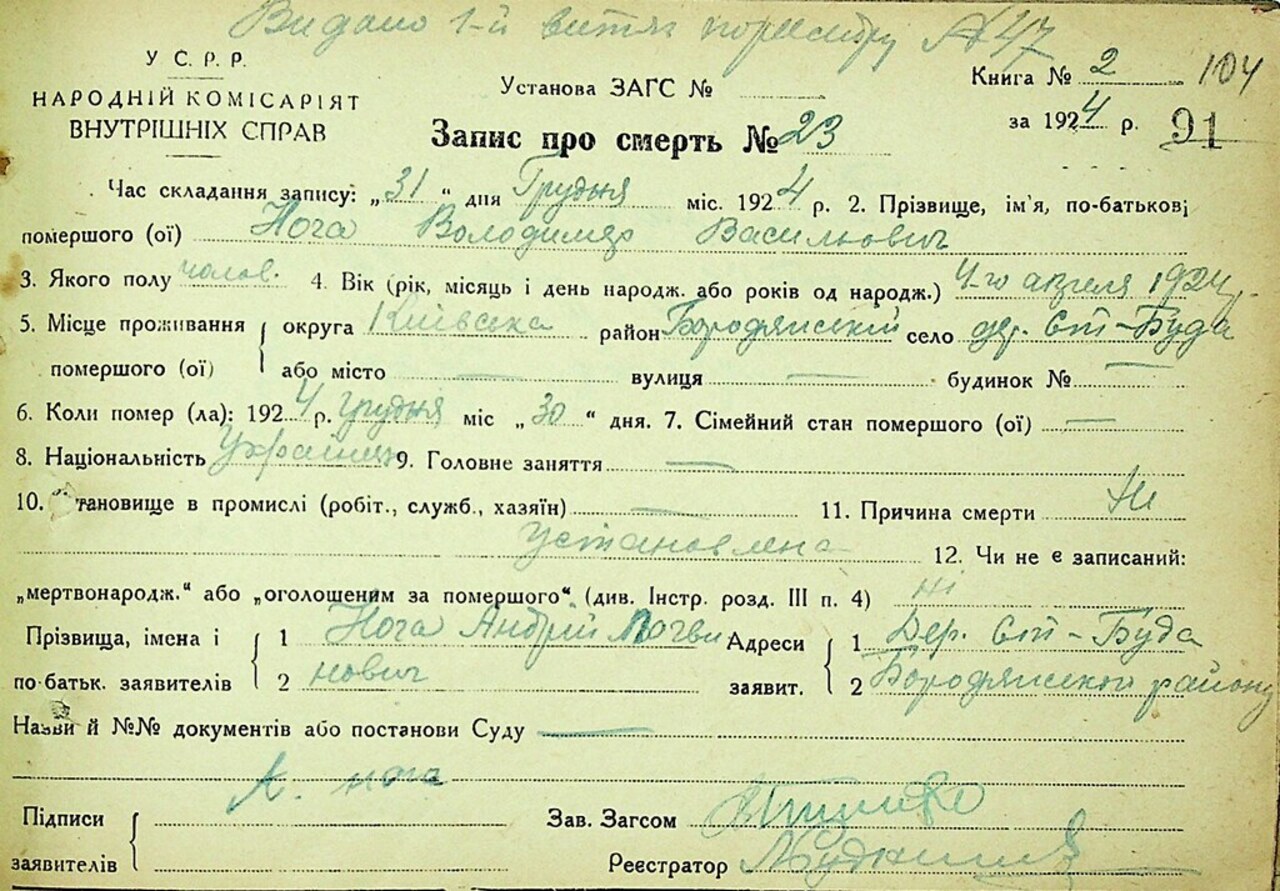 Видано 1-й витяг по реєстру № 47
У. С. Р. Р.
НАРОДНІЙ КОМІСАРІЯТ
ВНУТРІШНІХ СПРАВ
Установа ЗАГС №
Книга № 2 104
за 1924 р. 91
Запис про смерть № 23
Час складання запису: „31“ дня Грудня міс. 1924 р. 2. Прізвище, ім'я, по-батькові
помершого (ої) Нога Володимер Васильович
3. Якого полу чолов. 4. Вік (рік, місяць і день народж. або років од народж.) 4-го апреля 1924 р.
5. Місце проживання округа Київська район Бородянський село дер. Ст-Буда
помершого (ої) або місто — вулиця — будинок № —
6. Коли помер (ла): 1924 р. Грудня міс „30“ дня. 7. Сімейний стан помершого (ої) —
8. Національність Українец 9. Головне заняття —
10. тановище в промислі (робіт., служб., хазяїн) — 11. Причина смерти Ни
установлена 12. Чи не є записаний:
„мертвонародж.“ або „оголошеним за помершого“. (див. Інстр. розд. III п. 4) Ні
Прізвища, імена і 1 Нога Андрій Логви Адреси 1 Дер. Ст-Буда
по-батьк. заявителів 2 нович заявит. 2 Бородянській району
Назви й №№ документів або постанови Суду —
А. нога
Підписи
заявителів
Зав. Загсом
Реєстратор